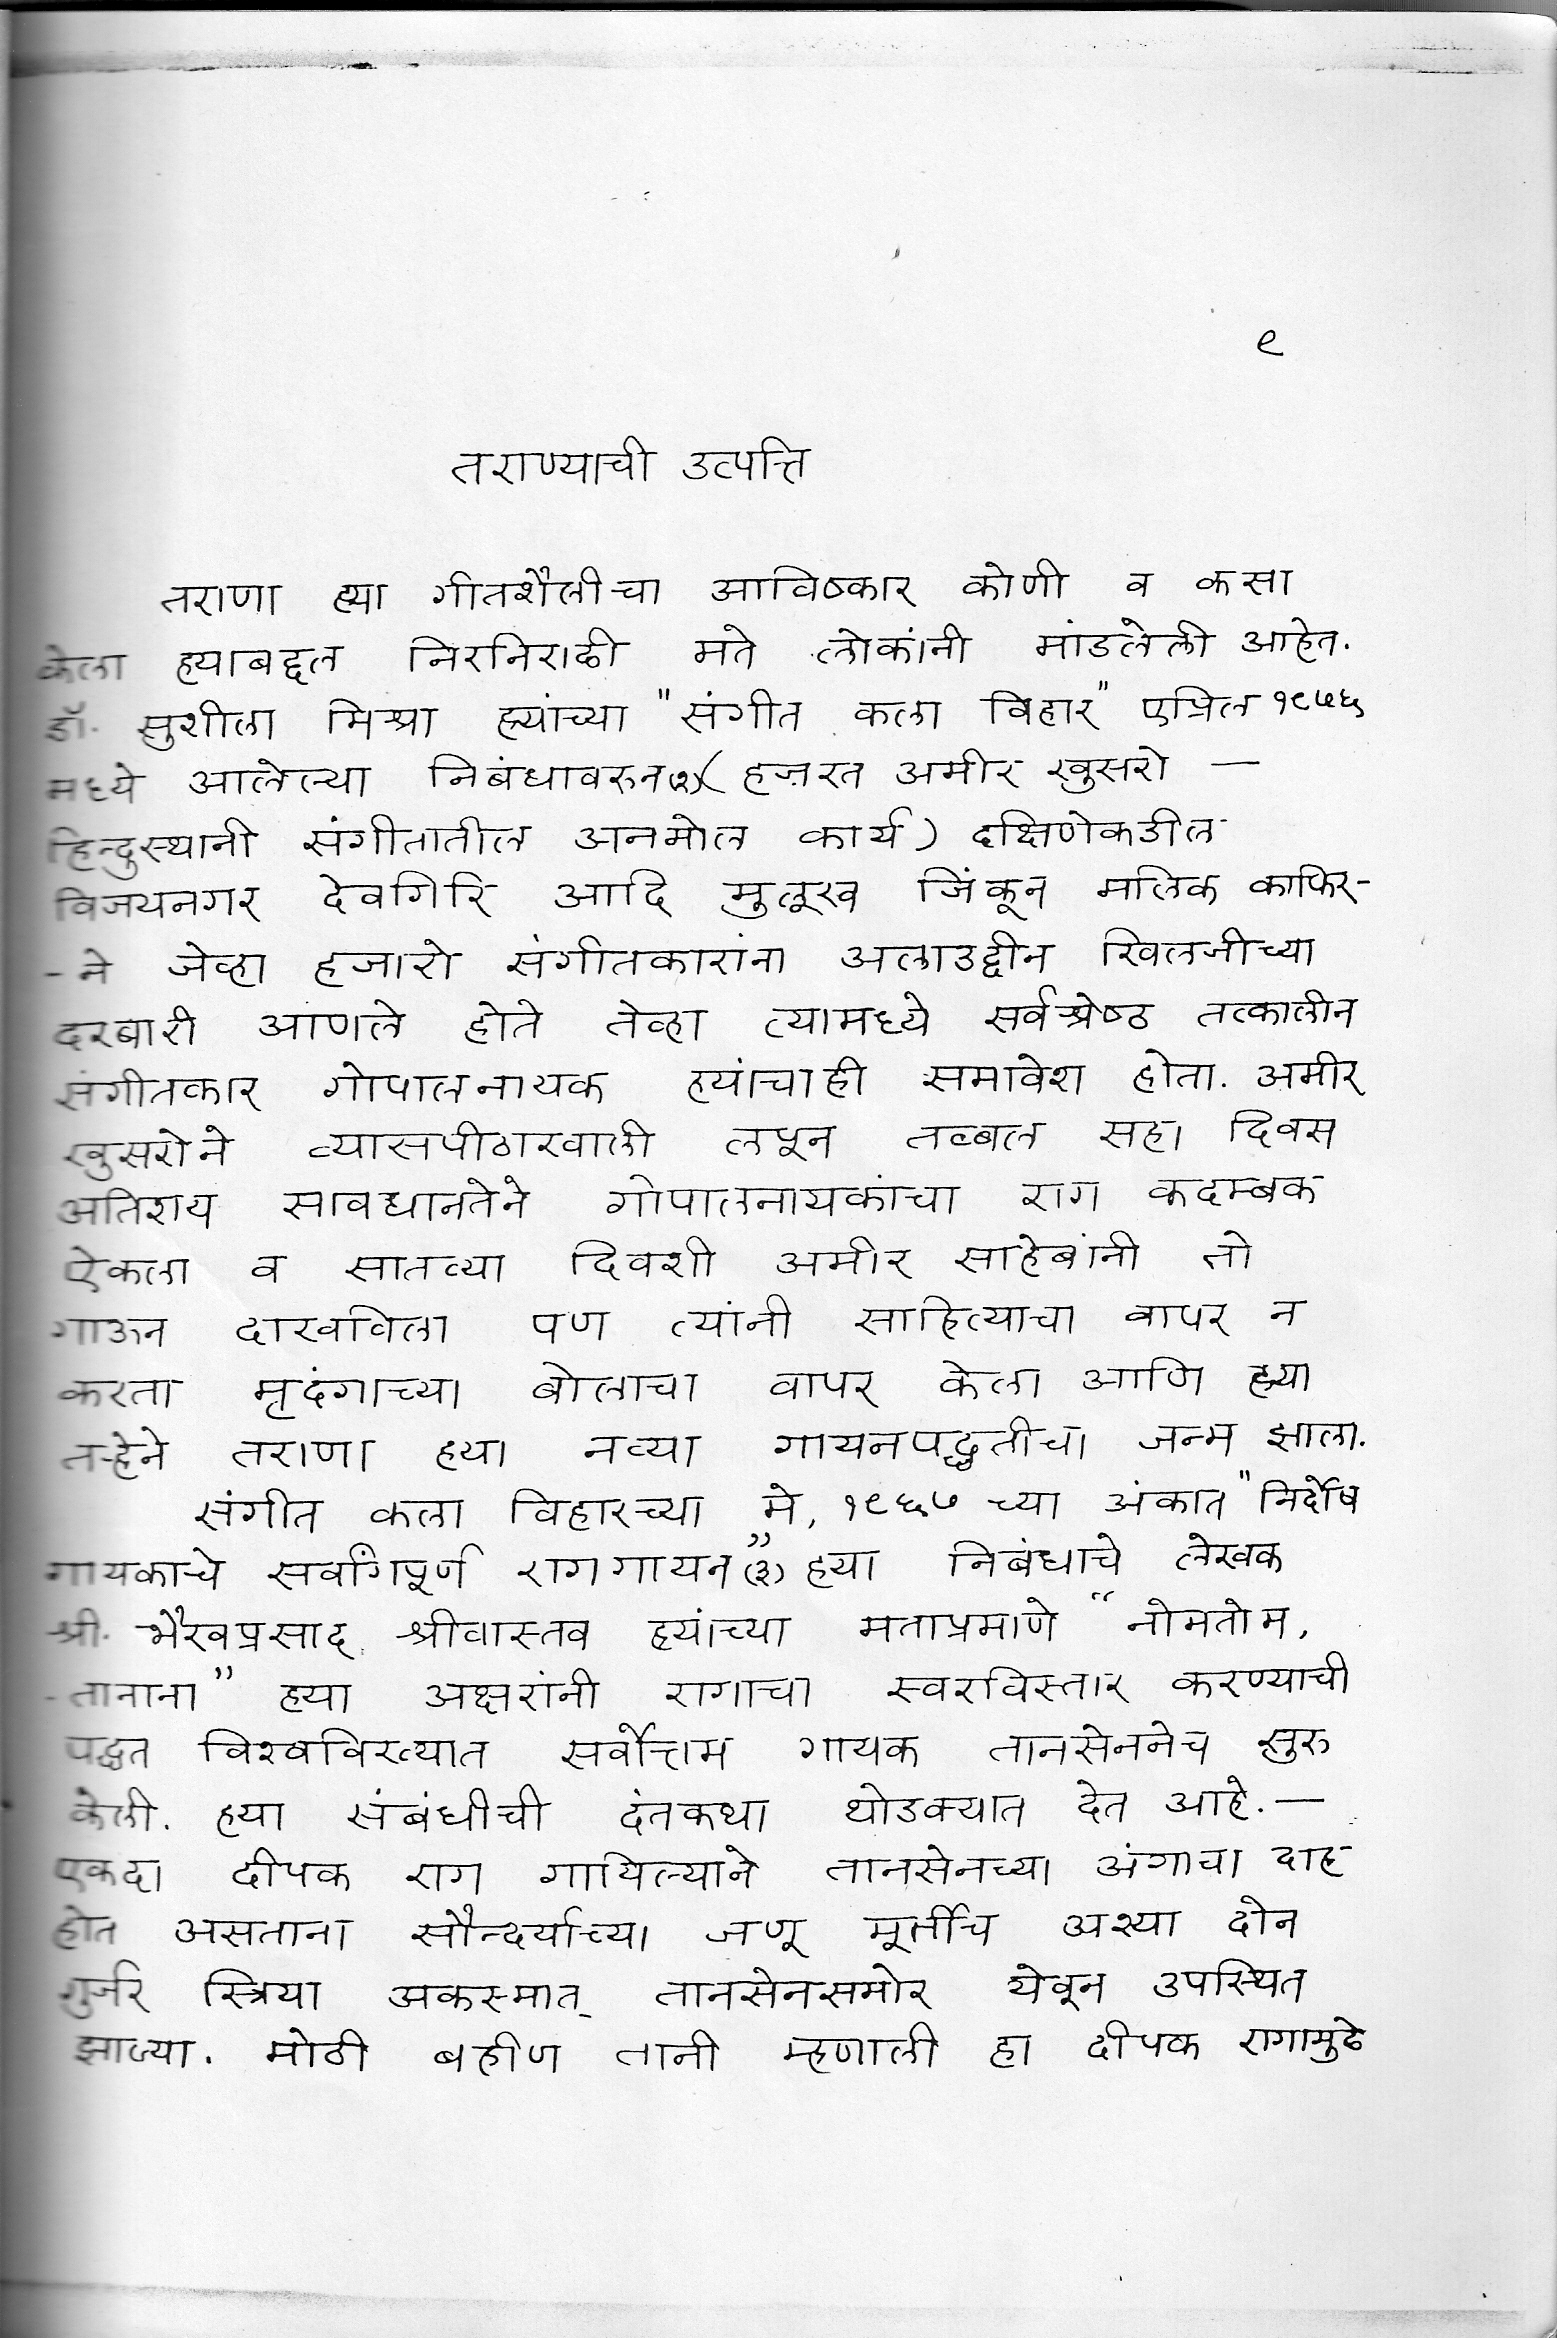 ९
तराण्याची उत्पत्ति
तराणा ह्या गीतशैलीचा आविष्कार कोणी व कसा
केला ह्याबद्दल निरनिराळी मते लोकांनी मांडलेली आहेत.
डॉ. सुशीला मिश्रा ह्यांच्या "संगीत कला विहार" एप्रिल १९७६
मध्ये आलेल्या निबंधावरुन(२)(हज़रत अमीर खुसरो —
हिन्दुस्थानी संगीतातील अनमोल कार्य) दक्षिणेकडील
विजयनगर देवगिरि आदि मुलूख जिंकून मलिक काफिर-
-ने जेव्हा हजारो संगीतकारांना अलाउद्दीन खिलजीच्या
दरबारी आणले होते तेव्हा त्यामध्ये सर्वश्रेष्ठ तत्कालीन
संगीतकार गोपालनायक ह्यांचाही समावेश होता. अमीर
खुसरोने व्यासपीठाखाली लपून तब्बल सहा दिवस
अतिशय सावधानतेने गोपालनायकांचा राग कदम्बक
ऐकला व सातव्या दिवशी अमीर साहेबांनी तो
गाऊन दाखविला पण त्यांनी साहित्याचा वापर न
करता मृदंगाच्या बोलाचा वापर केला आणि ह्या
तऱ्हेने तराणा ह्या नव्या गायनपद्धतीचा जन्म झाला.
संगीत कला विहारच्या मे, १९६७ च्या अंकात "निर्दोष
गायकाचे सर्वांगपूर्ण रागगायन"(३) ह्या निबंधाचे लेखक
श्री. भैरवप्रसाद श्रीवास्तव ह्यांच्या मताप्रमाणे "नोमतोम,
-तानाना" ह्या अक्षरांनी रागाचा स्वरविस्तार करण्याची
पद्धत विश्वविख्यात सर्वोत्तम गायक तानसेननेच सुरु
केली. ह्या संबंधीची दंतकथा थोडक्यात देत आहे.—
एकदा दीपक राग गायिल्याने तानसेनच्या अंगाचा दाह
होत असताना सौन्दर्याच्या जणू मूर्तीच अश्या दोन
गुर्जर स्त्रिया अकस्मात् तानसेनसमोर येवून उपस्थित
झाल्या. मोठी बहीण तानी म्हणाली हा दीपक रागामुळे